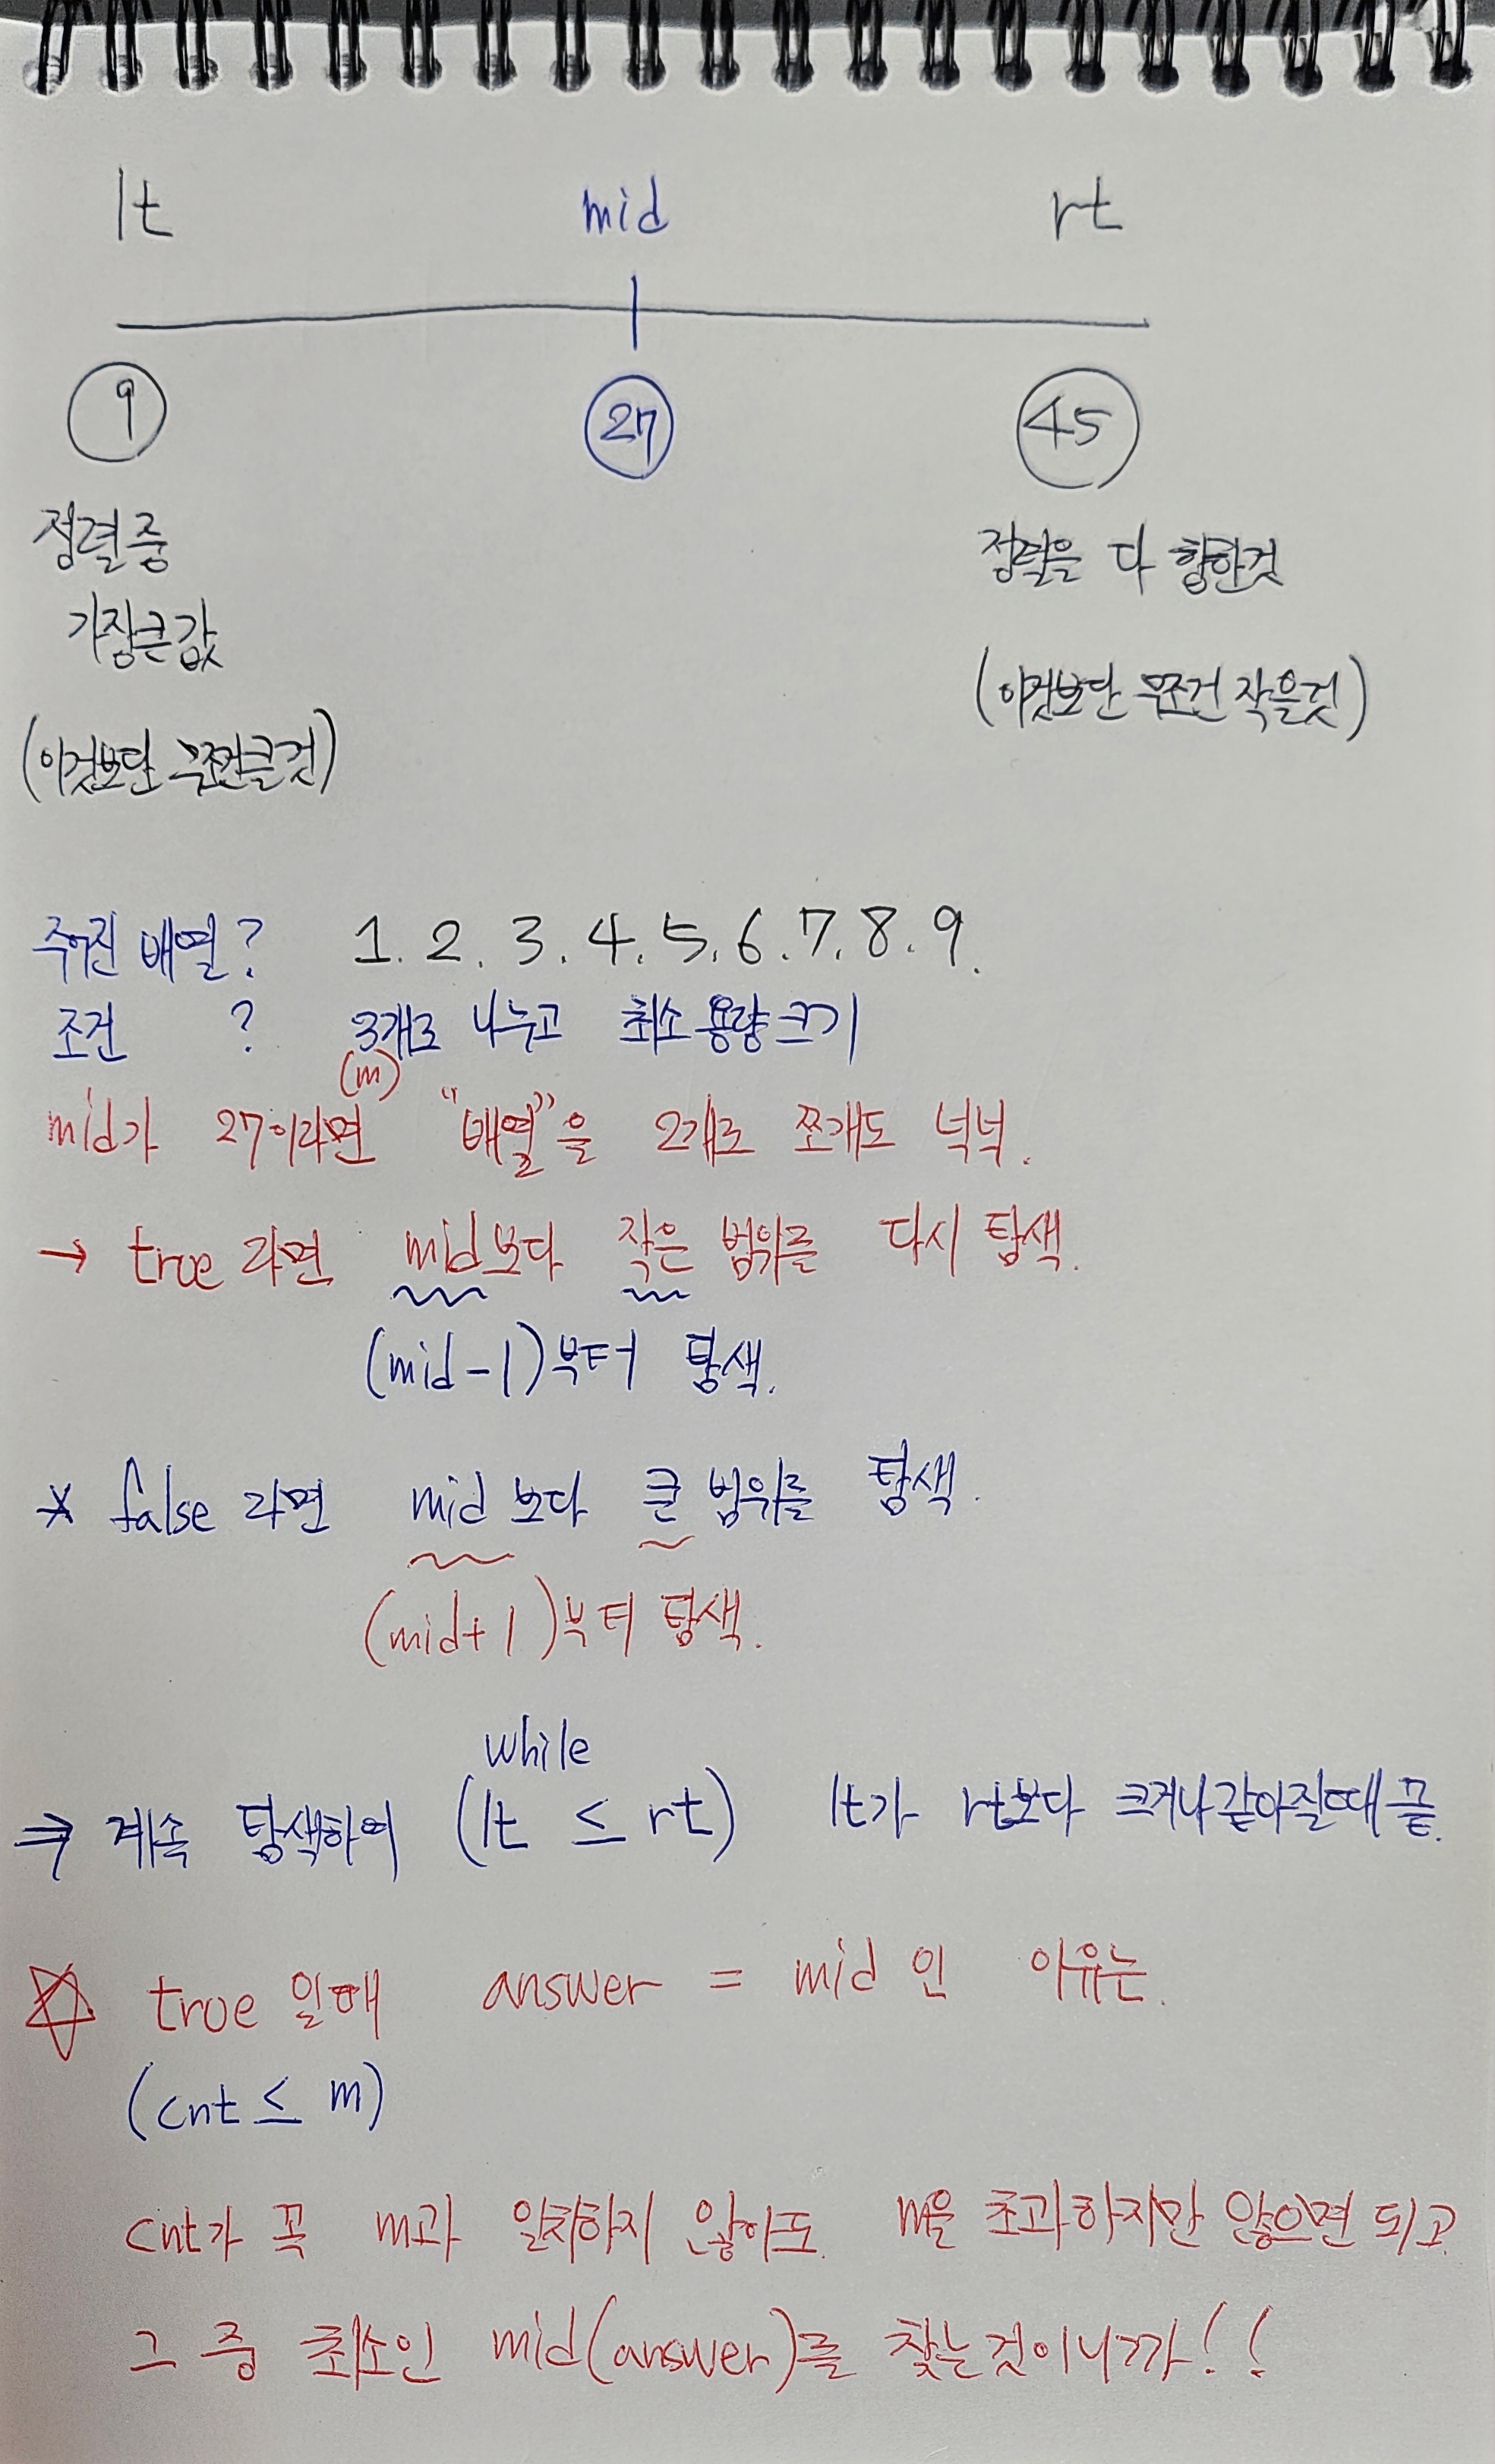 lt mid rt
9 27 45
정렬중
가장큰값
(이것보단 무조건클것)
정렬을 다 합한것
(이것보단 무조건 작을것)
주어진 배열? 1. 2. 3. 4. 5. 6. 7. 8. 9.
조건 ? 3개로 나누고 최소 용량크기
(m)
mid가 27이라면 "배열"을 2개로 쪼개도 넉넉.
→ true 라면 mid보다 작은 범위를 다시 탐색.
(mid-1)부터 탐색.
* false 라면 mid 보다 큰 범위를 탐색.
(mid+1)부터 탐색.
while
⇒ 계속 탐색하여 (lt ≤ rt) lt가 rt보다 크거나같아질때 끝.
☆ true 일때 answer = mid 인 이유는.
(cnt ≤ m)
cnt가 꼭 m과 일치하지 않아도. m을 초과하지만 않으면 되고
그 중 최소인 mid(answer)를 찾는것이니까!!